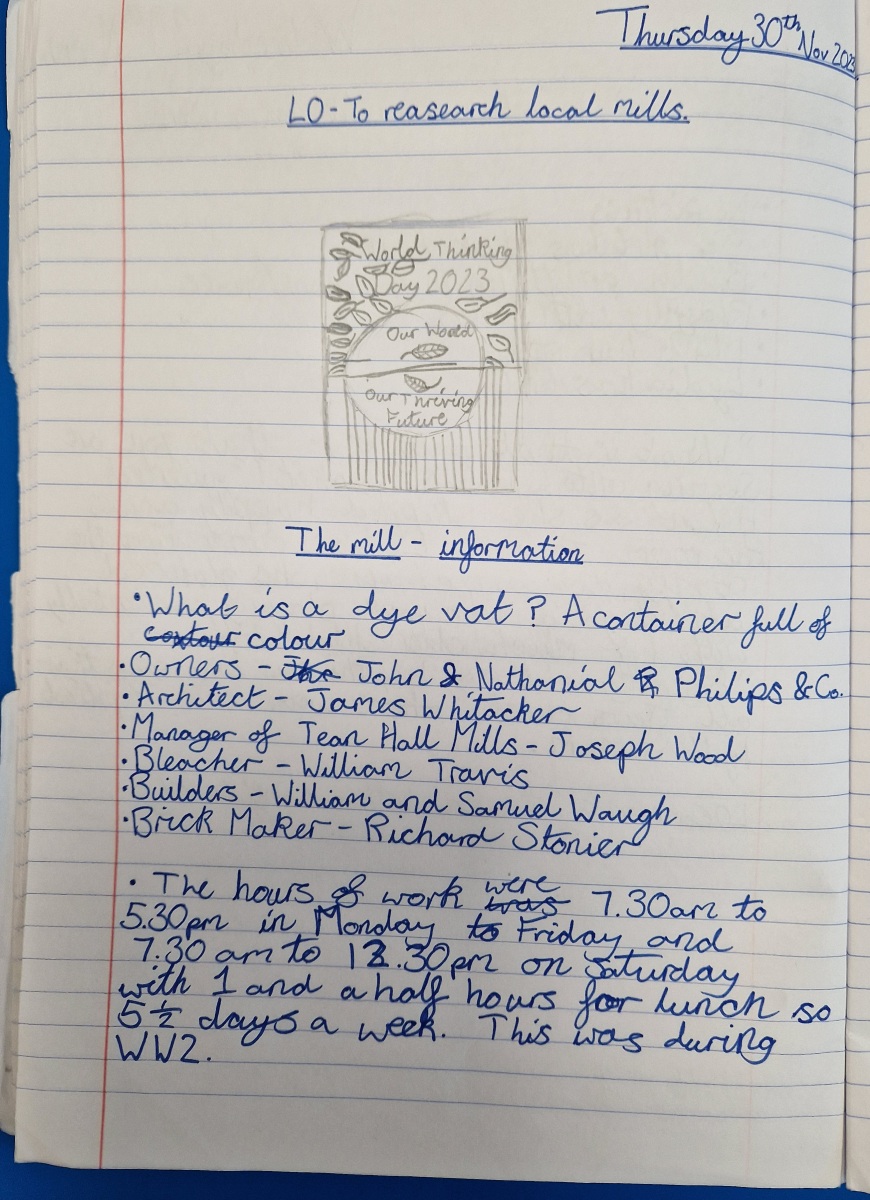 Thursday 30th Nov 2023
LO - To reasearch local mills.
World Thinking
Day 2023
Our World
Our Thriving
Future
The mill - information
• What is a dye vat? A container full of
colour
• Owners - John & Nathanial Philips & Co.
• Architect - James Whitacker
• Manager of Tean Hall Mills - Joseph Wood
• Bleacher - William Travis
• Builders - William and Samuel Waugh
• Brick Maker - Richard Stonier
• The hours of work were was 7.30am to
5.30pm in Monday to Friday and
7.30 am to 12.30pm on Saturday
with 1 and a half hours for lunch so
5 ½ days a week. This was during
WW2.